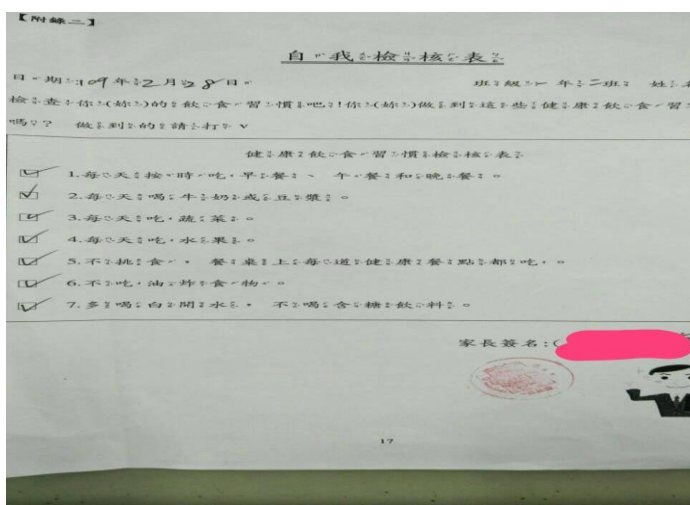 【附錄二】
自我檢核表
日期:109年12月28日 班級:一年二班 姓名
檢查你(妳)的飲食習慣吧!你(妳)做到這些健康飲食習
嗎? 做到的請打v
健康飲食習慣檢核表
1.每天按時吃早餐、午餐和晚餐。
2.每天喝牛奶或豆漿。
3.每天吃蔬菜。
4.每天吃水果。
5.不挑食,餐桌上每道健康餐點都吃。
6.不吃油炸食物。
7.多喝白開水,不喝含糖飲料。
家長簽名:(
17